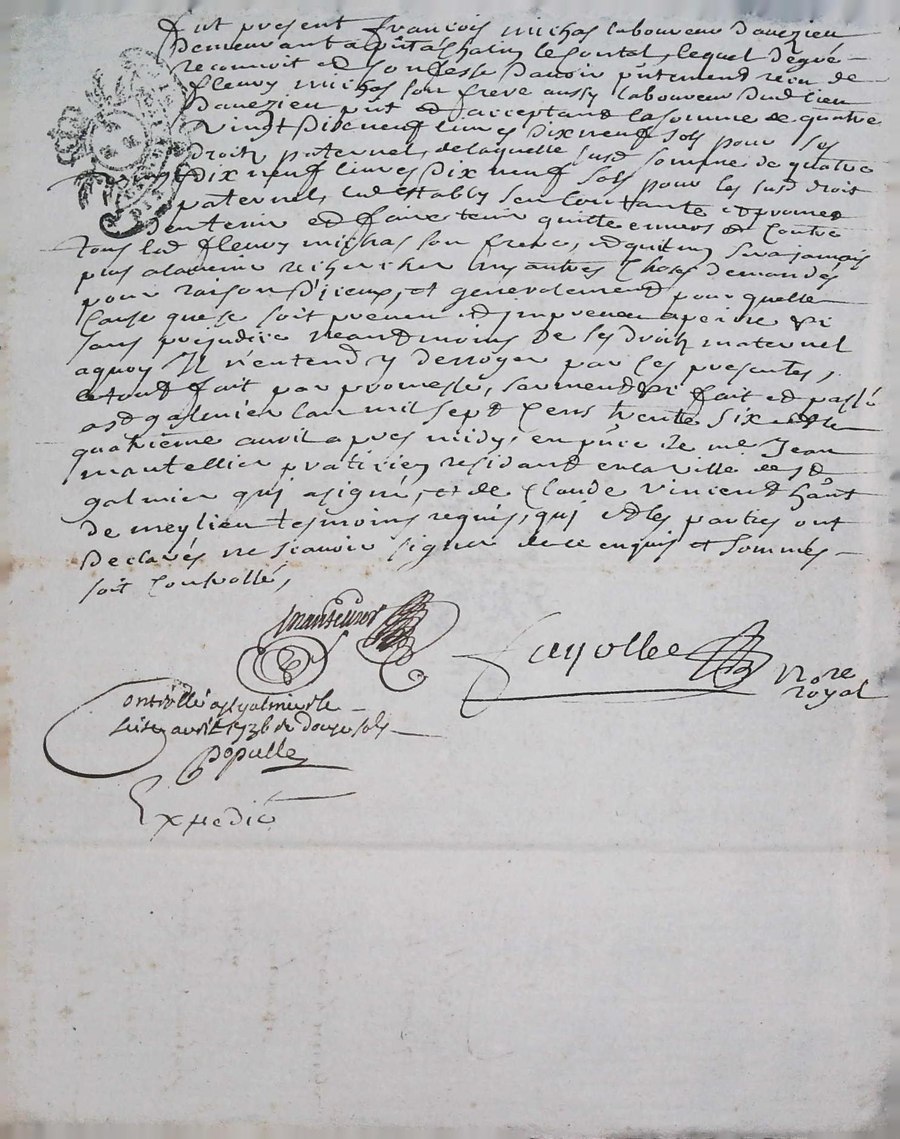 fut present françois michas laboureur d'avezieu
demeurant a chalain le Contal, lequel de gré
reconnoit et Confesse d'avoir pntement reçu de
fleury michas son frere aussy laboureur dud lieu
d'avezieu pnt et acceptant la somme de quatre
vingt dix neuf livres dix neuf sols pour ses
droits paternels, de laquelle susd somme de quatre
dix neuf livres dix neuf sols pour les susd droit
paternel, led estably sen Contante et promet
d'entenir et faire tenir quitte envers et Contre
tous led fleury michas son frere, et quil ny sera jamais
plus alavenir rechercher ny autres Choses demandés
pour raison d'iceux, et generalement pour quelle
Cause que ce soit prevue et imprevue a peine &i
sans prejudice neandmoins de ses droits maternel
aquoy Il n'entend y derroger par les presentes,
et tout fait par promesse, serment &i fait et passé
a st galmier lan mil sept Cens trente six et le
quatrième avril apres midy, en pnce de me Jean
mantellier praticien residant en la ville de st
galmier qui a signé, et de Claude Vincent hant
de meylieu tesmoins requis, qui et les parties ont
declarés ne scavoir signer de ce enquis et sommés
soit Controllé,
mantellier
fayolle
Nore
royal
Controllé a st galmier le
seize avril 1736 de douze sols
Populle
Expedié